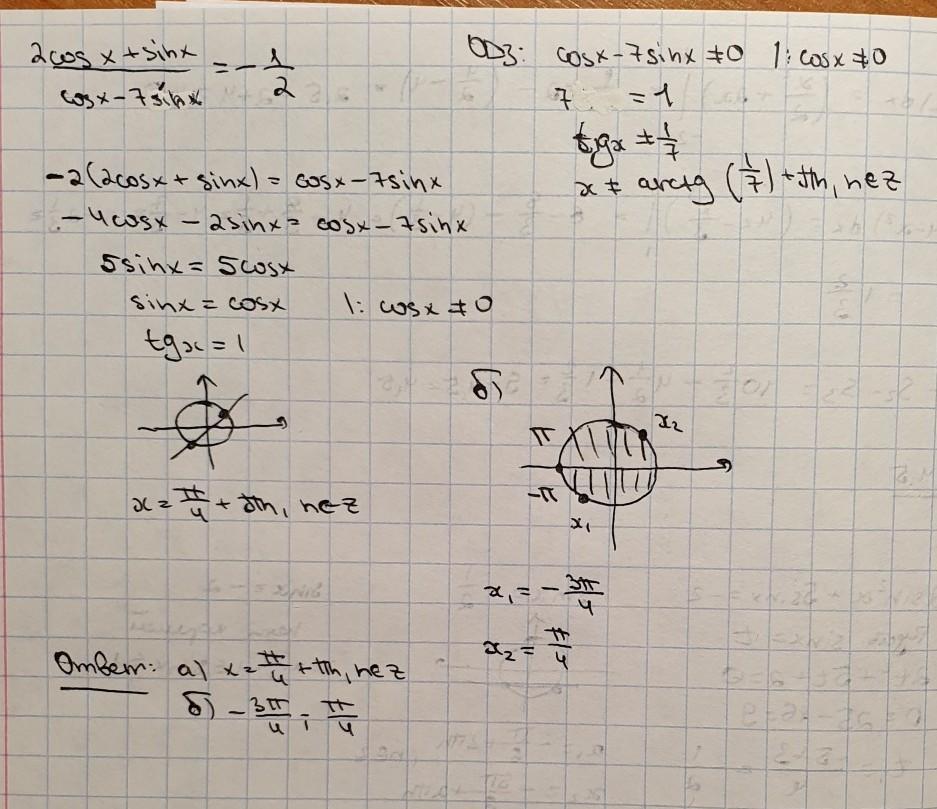 2cosx + sinx / cosx - 7sinx = - 1/2
ОДЗ: cosx - 7sinx ≠ 0 |: cosx ≠ 0
7 = 1
tgx ≠ 1/7
x ≠ arctg (1/7) + πn, n∈Z
-2(2cosx + sinx) = cosx - 7sinx
-4cosx - 2sinx = cosx - 7sinx
5sinx = 5cosx
sinx = cosx |: cosx ≠ 0
tgx = 1
x = π/4 + πn, n∈Z
б)
π
x₂
-π
x₁
x₁ = - 3π/4
x₂ = π/4
Ответ: а) x = π/4 + πn, n∈Z
б) - 3π/4 ; π/4